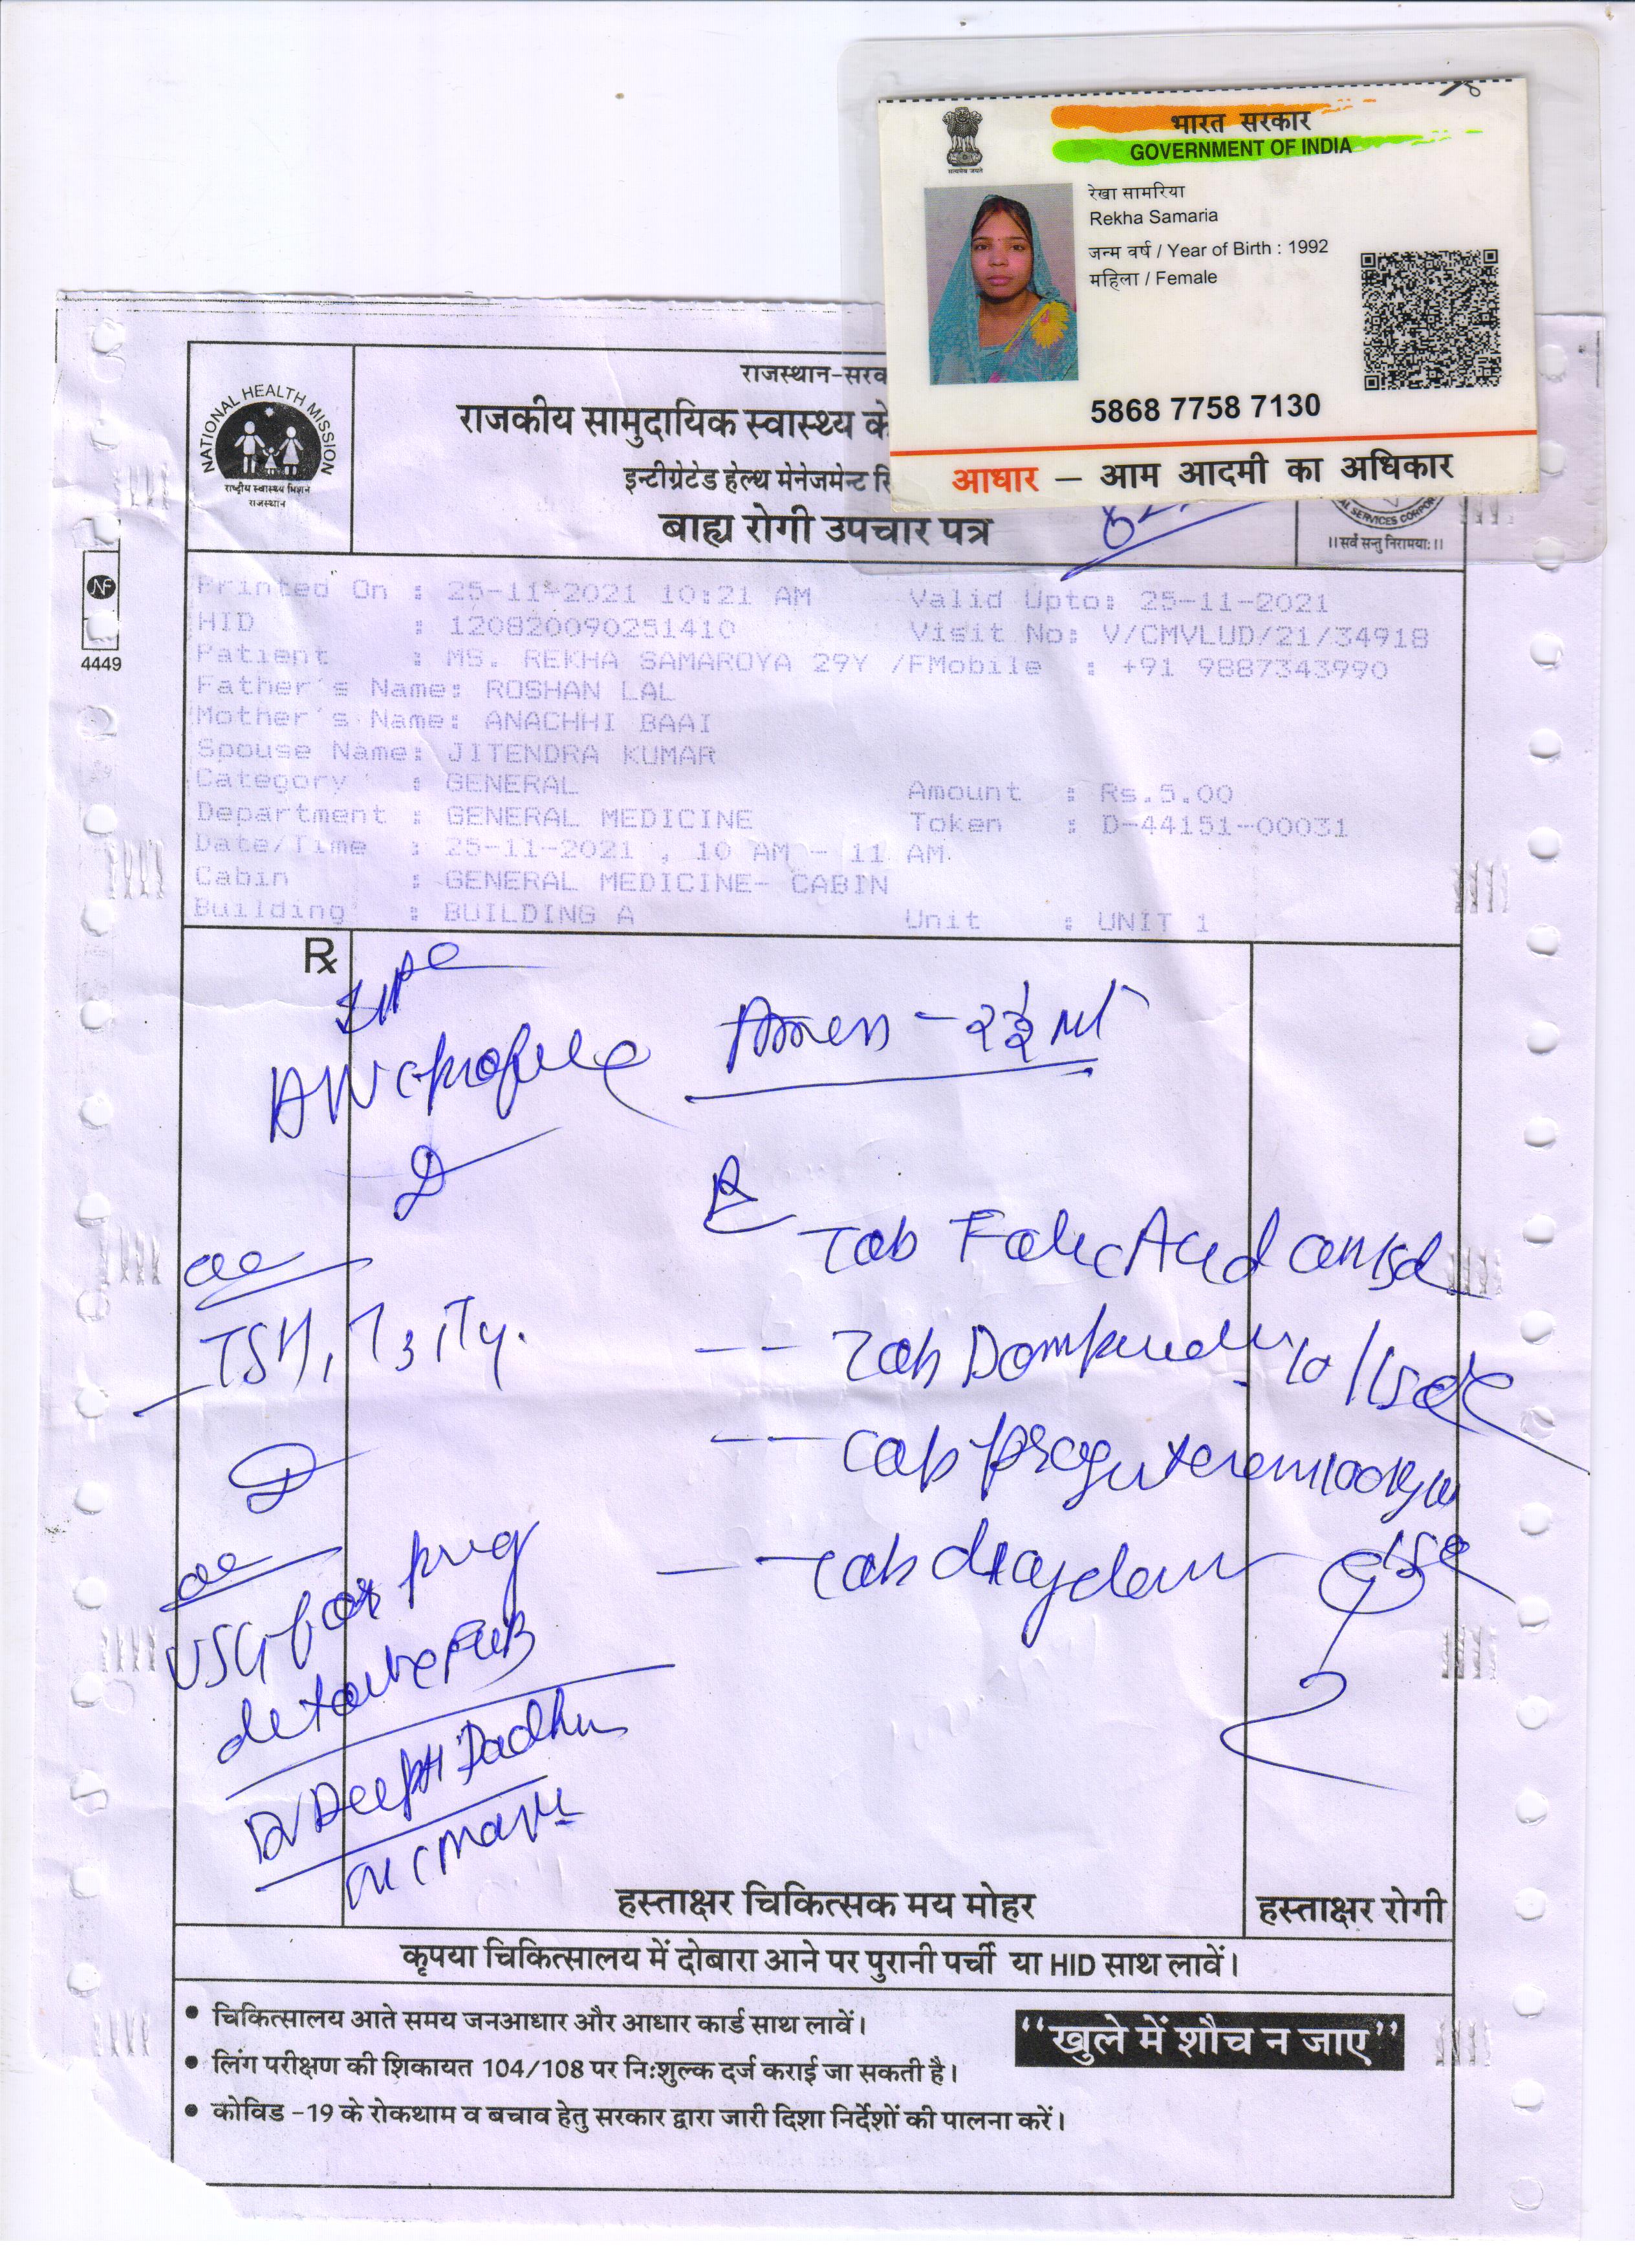 भारत सरकार
GOVERNMENT OF INDIA
सत्यमेव जयते
रेखा सामरिया
Rekha Samaria
जन्म वर्ष / Year of Birth : 1992
महिला / Female
5868 7758 7130
आधार – आम आदमी का अधिकार
NATIONAL HEALTH MISSION
राष्ट्रीय स्वास्थ्य मिशन
राजस्थान
राजस्थान-सरक
राजकीय सामुदायिक स्वास्थ्य के
इन्टीग्रेटेड हेल्थ मेनेजमेन्ट सि
बाह्य रोगी उपचार पत्र
AL SERVICES CORPOR
॥सर्वे सन्तु निरामयाः॥
NF
4449
Printed On : 25-11-2021 10:21 AM Valid Upto: 25-11-2021
HID : 120820090251410 Visit No: V/CMVLUD/21/34918
Patient : MS. REKHA SAMAROYA 29Y /FMobile : +91 9887343990
Father's Name: ROSHAN LAL
Mother's Name: ANACHHI BAAI
Spouse Name: JITENDRA KUMAR
Category : GENERAL Amount : Rs.5.00
Department : GENERAL MEDICINE Token : D-44151-00031
Date/Time : 25-11-2021 , 10 AM - 11 AM
Cabin : GENERAL MEDICINE- CABIN
Building : BUILDING A Unit : UNIT 1
Rx
ANC profile
Rx
Tab Folic Acid
TSH, T3, T4.
-- Tab 10
-- Cap
-- Tab
USG for
Dr Deepti
हस्ताक्षर चिकित्सक मय मोहर
हस्ताक्षर रोगी
कृपया चिकित्सालय में दोबारा आने पर पुरानी पर्ची या HID साथ लावें।
• चिकित्सालय आते समय जनआधार और आधार कार्ड साथ लावें।
• लिंग परीक्षण की शिकायत 104/108 पर निःशुल्क दर्ज कराई जा सकती है।
• कोविड -19 के रोकथाम व बचाव हेतु सरकार द्वारा जारी दिशा निर्देशों की पालना करें।
"खुले में शौच न जाए"